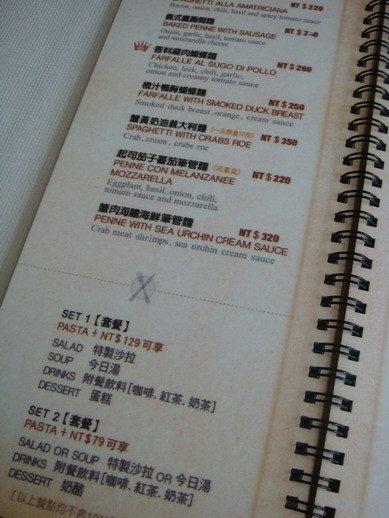 SPAGHETTI ALLA AMATRICIANA NT$220
Bacon, onion, chili, basil and spicy tomato sauce
義式臘腸焗麵
BAKED PENNE WITH SAUSAGE
Onion, garlic, basil, tomato sauce
and mozzarella cheese
香料雞肉蝴蝶麵
FARFALLE AL SUGO DI POLLO NT$260
Chicken, leek, chili, garlic,
onion and creamy tomato sauce
橙汁鴨胸蝴蝶麵 NT$250
FARFALLE WITH SMOKED DUCK BREAST
Smoked duck breast, orange, cream sauce
蟹黃奶油義大利麵 (一天限量10份) NT$350
SPAGHETTI WITH CRABS ROE
Crab, cream, crabs roe
起司茄子蕃茄筆管麵 (可素食)
PENNE CON MELANZANEE NT$220
MOZZARELLA
Eggplant, basil, onion, chili,
tomato sauce and mozzarella
蟹肉海膽海鮮筆管麵 NT$320
PENNE WITH SEA URCHIN CREAM SAUCE
Crab meat shrimps, sea urchin cream sauce
SET 1【套餐】
PASTA + NT$129可享
SALAD 特製沙拉
SOUP 今日湯
DRINKS 附餐飲料[咖啡.紅茶.奶茶]
DESSERT 蛋糕
SET 2【套餐】
PASTA + NT$79可享
SALAD OR SOUP 特製沙拉 OR 今日湯
DRINKS 附餐飲料[咖啡.紅茶.奶茶]
DESSERT 奶酪
[以上餐點均不